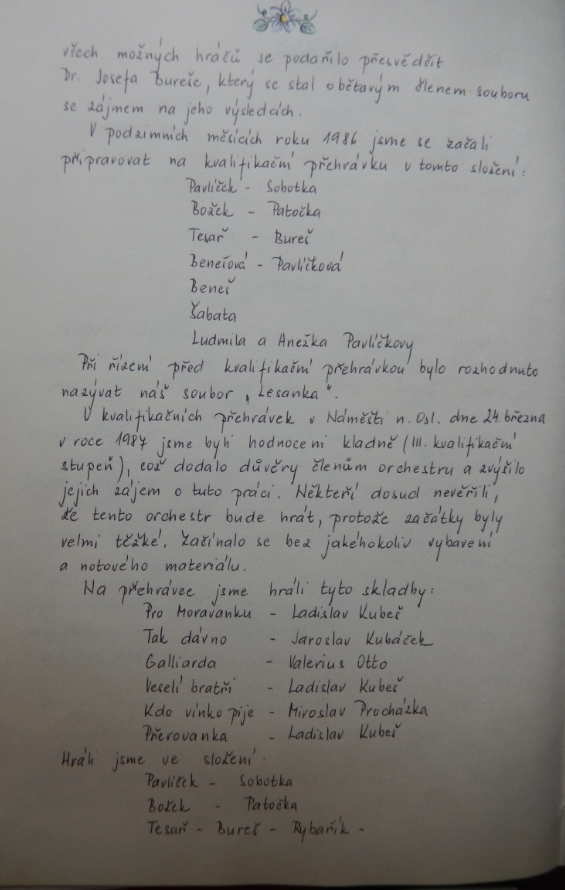 všech možných hráčů se podařilo přesvědčit
Dr. Josefa Bureše, který se stal obětavým členem souboru
se zájmem na jeho výsledcích.
V podzimních měsících roku 1986 jsme se začali
připravovat na kvalifikační přehrávku v tomto složení:
Pavlíček - Sobotka
Božek - Patočka
Tesař - Bureš
Benešová - Pavlíčková
Beneš
Šabata
Ludmila a Anežka Pavlíčkovy
Při řízení před kvalifikační přehrávkou bylo rozhodnuto
nazývat náš soubor „Lesanka".
V kvalifikačních přehrávek v Náměšti n. Osl. dne 24. března
v roce 1987 jsme byli hodnoceni kladně (III. kvalifikační
stupeň), což dodalo důvěry členům orchestru a zvýšilo
jejich zájem o tuto práci. Někteří dosud nevěřili,
že tento orchestr bude hrát, protože začátky byly
velmi těžké. Začínalo se bez jakéhokoliv vybavení
a notového materiálu.
Na přehrávce jsme hráli tyto skladby:
Pro Moravanku - Ladislav Kubeš
Tak dávno - Jaroslav Kubáček
Galliarda - Valerius Otto
Veselí bratři - Ladislav Kubeš
Kdo vínko pije - Miroslav Procházka
Přerovanka - Ladislav Kubeš
Hráli jsme ve složení:
Pavlíček - Sobotka
Božek - Patočka
Tesař - Bureš - Rybařík -